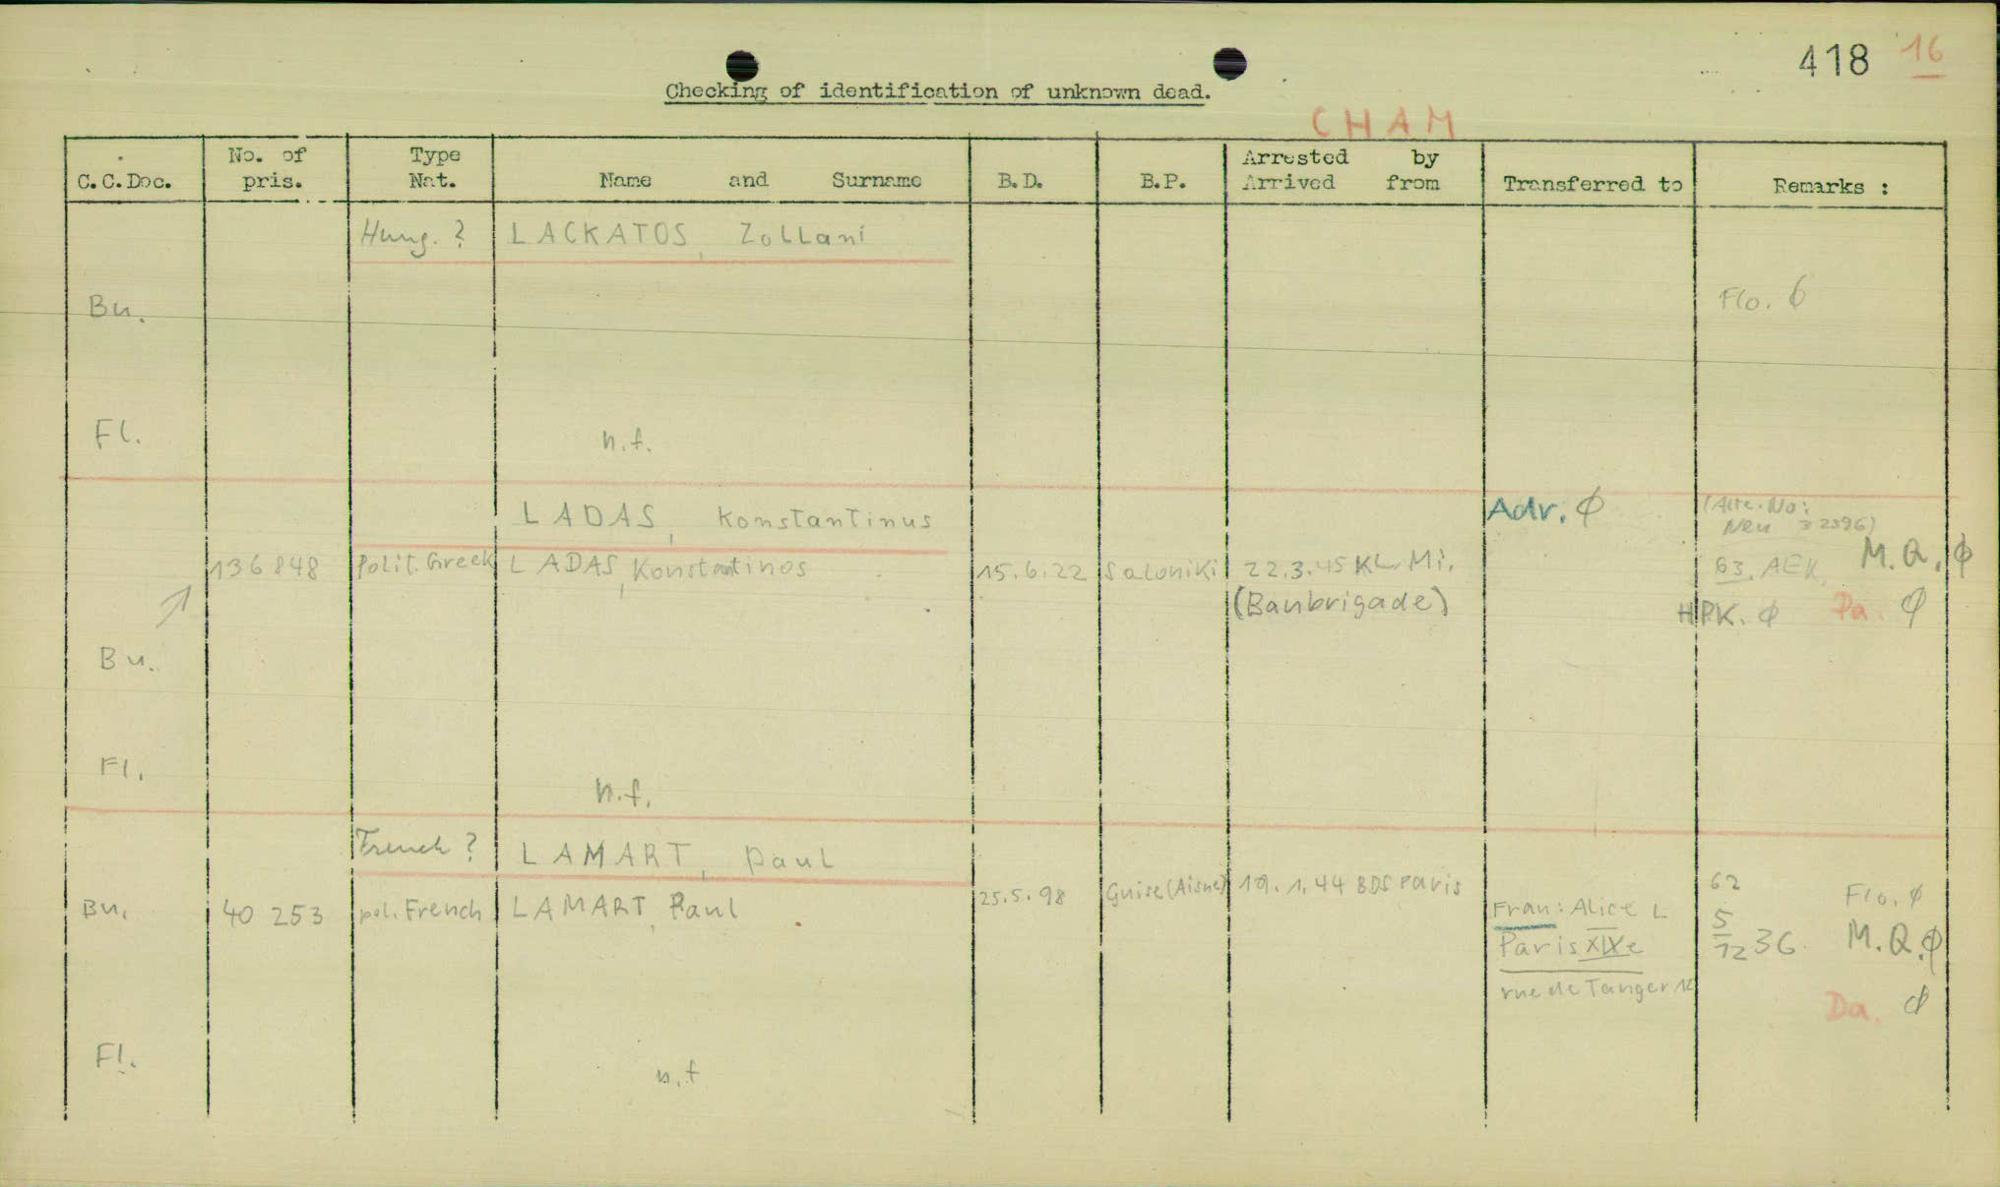 418 16
Checking of identification of unknown dead.
CHAM
C.C.Doc.
No. of pris.
Type Nat.
Name and Surname
B.D.
B.P.
Arrested by
Arrived from
Transferred to
Remarks :
Hung. ? LACKATOS, Zollani
Bu. Flo. ϕ
Fl. n.f.
LADAS, Konstantinus Adr. ϕ
Neu 32396)
136848 Polit. Greek LADAS, Konstantinos 15.6.22 Saloniki 22.3.45 KL. Mi. 63. AEK. M.Q. ϕ
(Baubrigade) HPK. ϕ Da. ϕ
Bu.
Fl. n.f.
French ? LAMART, Paul
Bu. 40 253 pol. French LAMART, Paul 25.5.98 Guise (Aisne) 19.1.44 BDS Paris 62 Flo. ϕ
Frau: Alice L
Paris XIXe 5/12 36. M.Q. ϕ
rue de Tanger 12 Da. ϕ
Fl. n.f